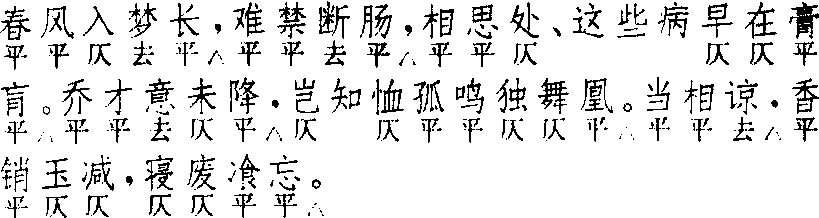 春风入梦长，难禁断肠，相思处、这些病早在膏
平平仄去平△平平去平△平平仄 仄仄平
肓。乔才意未降．岂知恤孤鸣独舞凰。当相谅．香
平△平平去仄平△仄 仄平平仄仄平△平平去△平
销玉减，寝废飡忘。
平仄仄 仄仄平平△